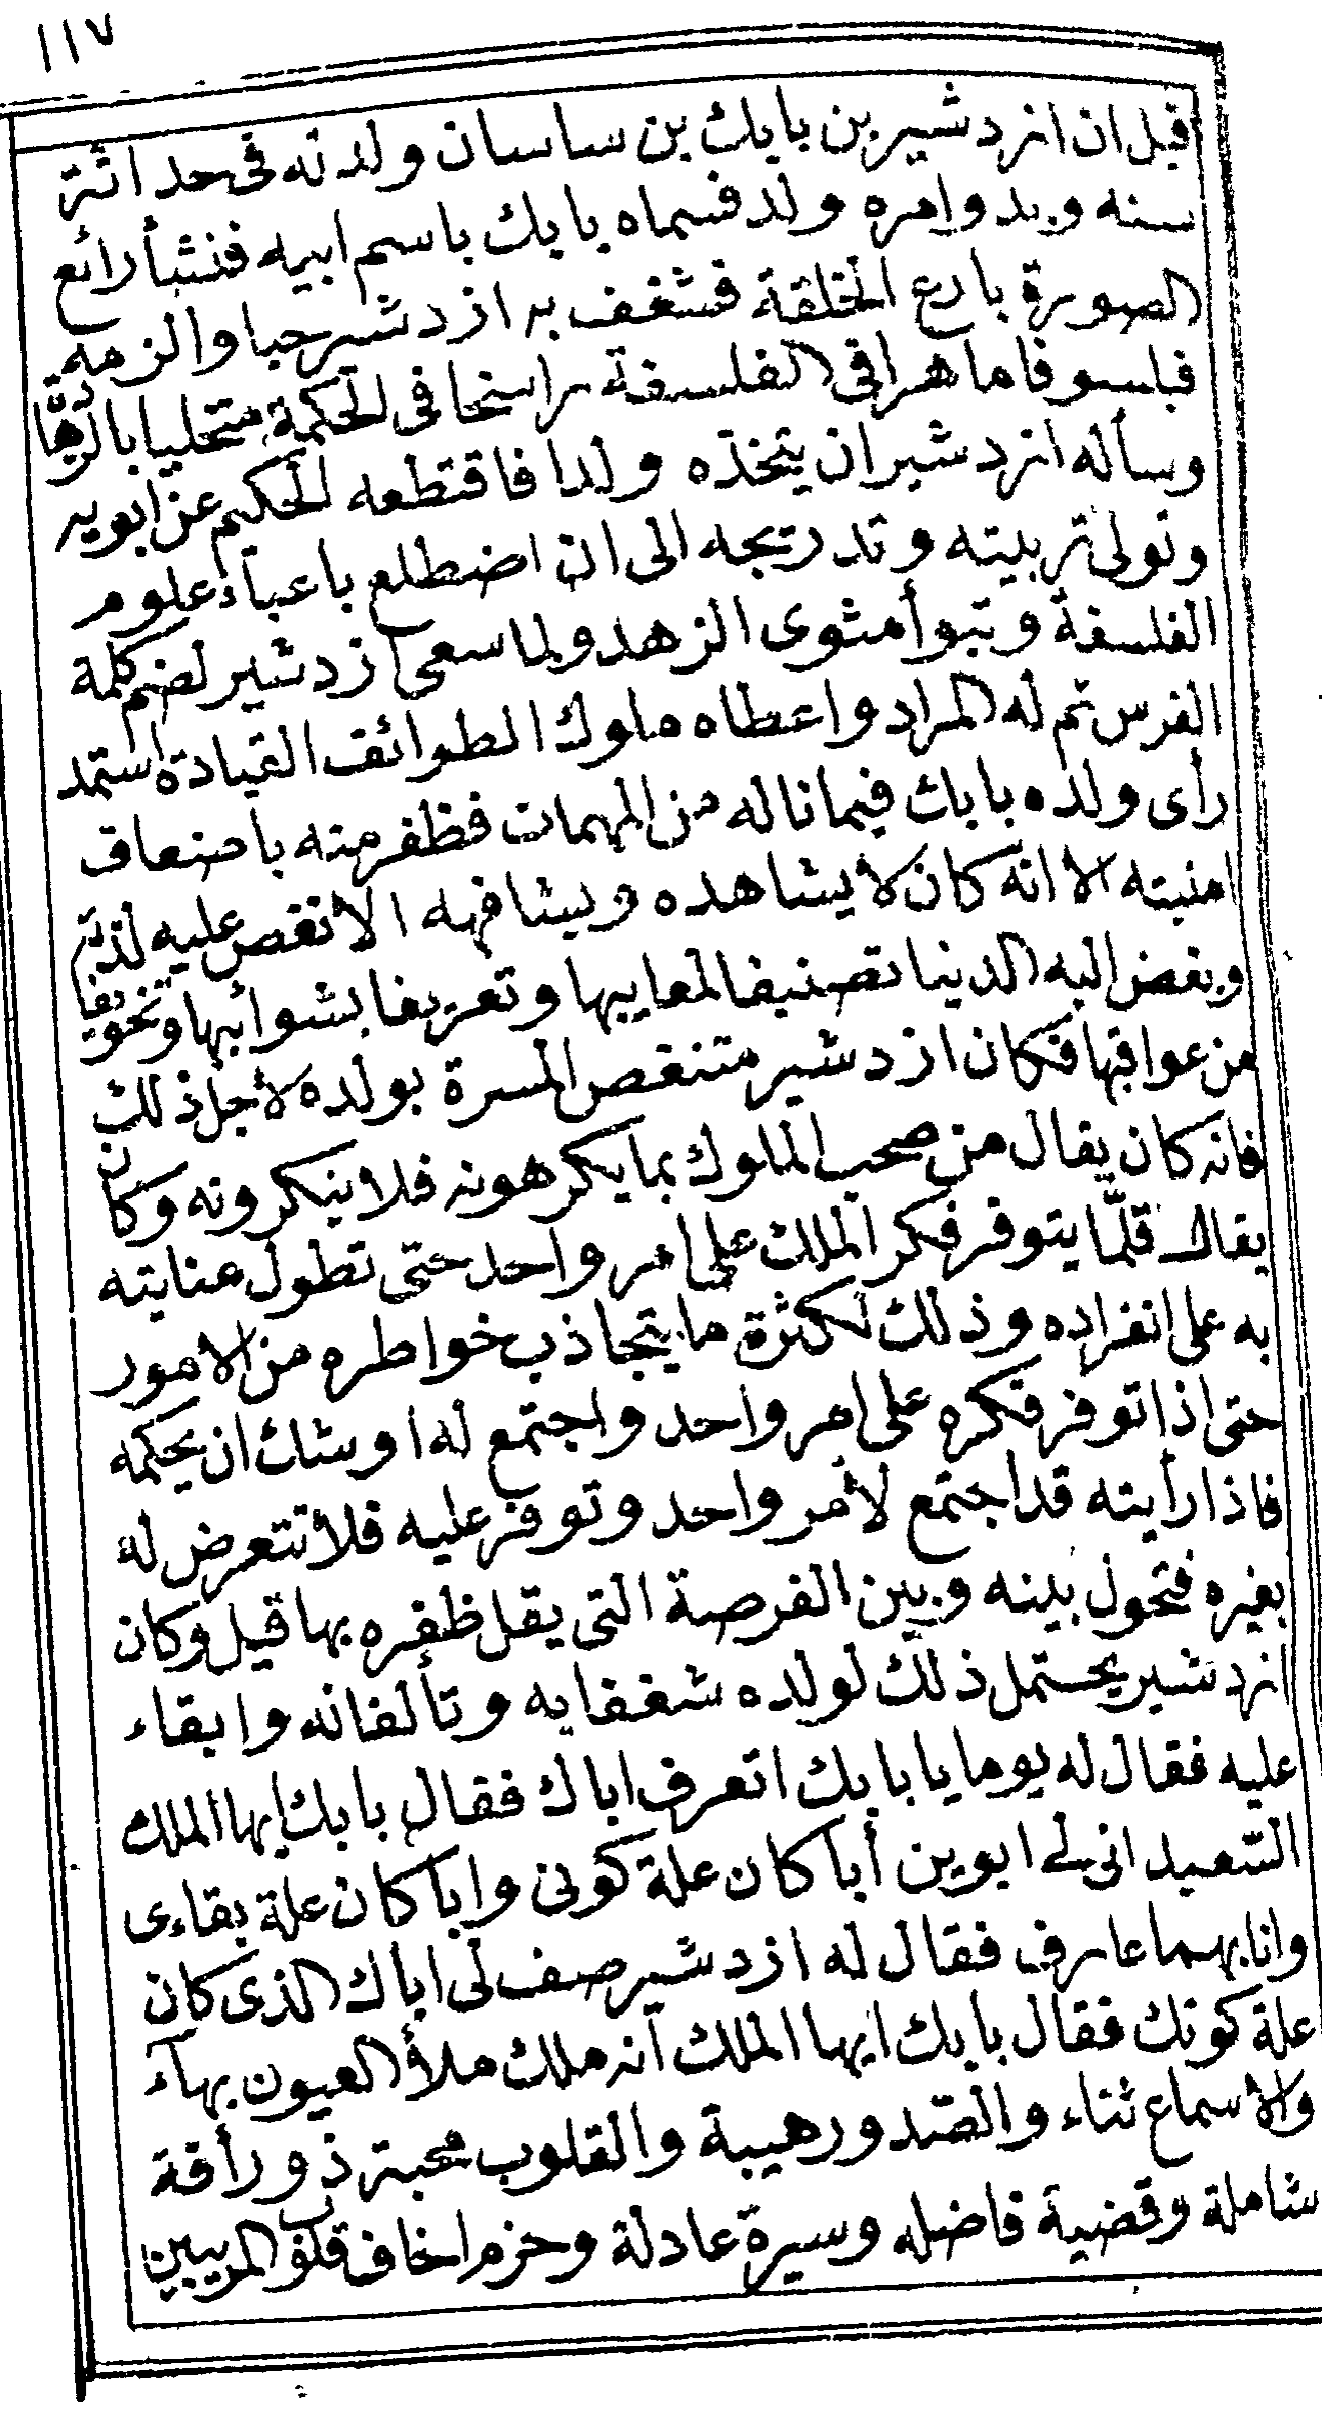 ١١٧
قيل ان ازدشير بن بابك بن ساسان ولد له فى حداثة
سنه وبدو امره ولد فسماه بابك باسم ابيه فنشأ رائع
الصورة بارع الخلقة فشغف به ازدشير حبا والزمه
فيلسوفا ماهرا فى الفلسفة راسخا فى الحكمة متحليا بالزهادة
وسأله ازدشير ان يتخذه ولدا فاقتطعه الحكيم عن ابويه
وتولى تربيته وتدريجه الى ان اضطلع باعباء علوم
الفلسفة وتبوأ مثوى الزهد ولما سعى ازدشير لضم كلمة
الفرس تم له المراد واعطاه ملوك الطوائف القيادة استمد
رأى ولده بابك فيما ناله من المهمات فظفر منه باضعاف
امنيته الا انه كان لا يشاهده ويشافهه الا نغص عليه لذته
وبغض اليه الدنيا تصنيفا لمعايبها وتعريفا بشوائبها وتخويفا
من عواقبها فكان ازدشير متنغص المسرة بولده لأجل ذلك
فانه كان يقال من صحب الملوك بما يكرهونه فلا ينكرونه وكان
يقال قلّما يتوفر فكر الملك على امر واحد حتى تطول عنايته
به على انفراده وذلك لكثرة ما يتجاذب خواطره من الامور
حتى اذا توفر فكره على امر واحد واجتمع له اوشك ان يحكمه
فاذا رأيته قد اجتمع لأمر واحد وتوفر عليه فلا تتعرض له
بغيره فتحول بينه وبين الفرصة التى يقل ظفره بها قيل وكان
ازدشير يحتمل ذلك لولده شغفا به وتألفا له وابقاء
عليه فقال له يوما يا بابك اتعرف اباك فقال بابك ايها الملك
السّعيد انى لى ابوين أبا كان علة كونى وابا كان علة بقاءى
وانا بهما عارف فقال له ازدشير صف لى اباك الذى كان
علة كونك فقال بابك ايها الملك انه ملك ملأ العيون بهآء
والاسماع ثناء والصّدور هيبة والقلوب محبة ذو رأفة
شاملة وقضية فاضله وسيرة عادلة وحزم اخاف قلوب المريبين